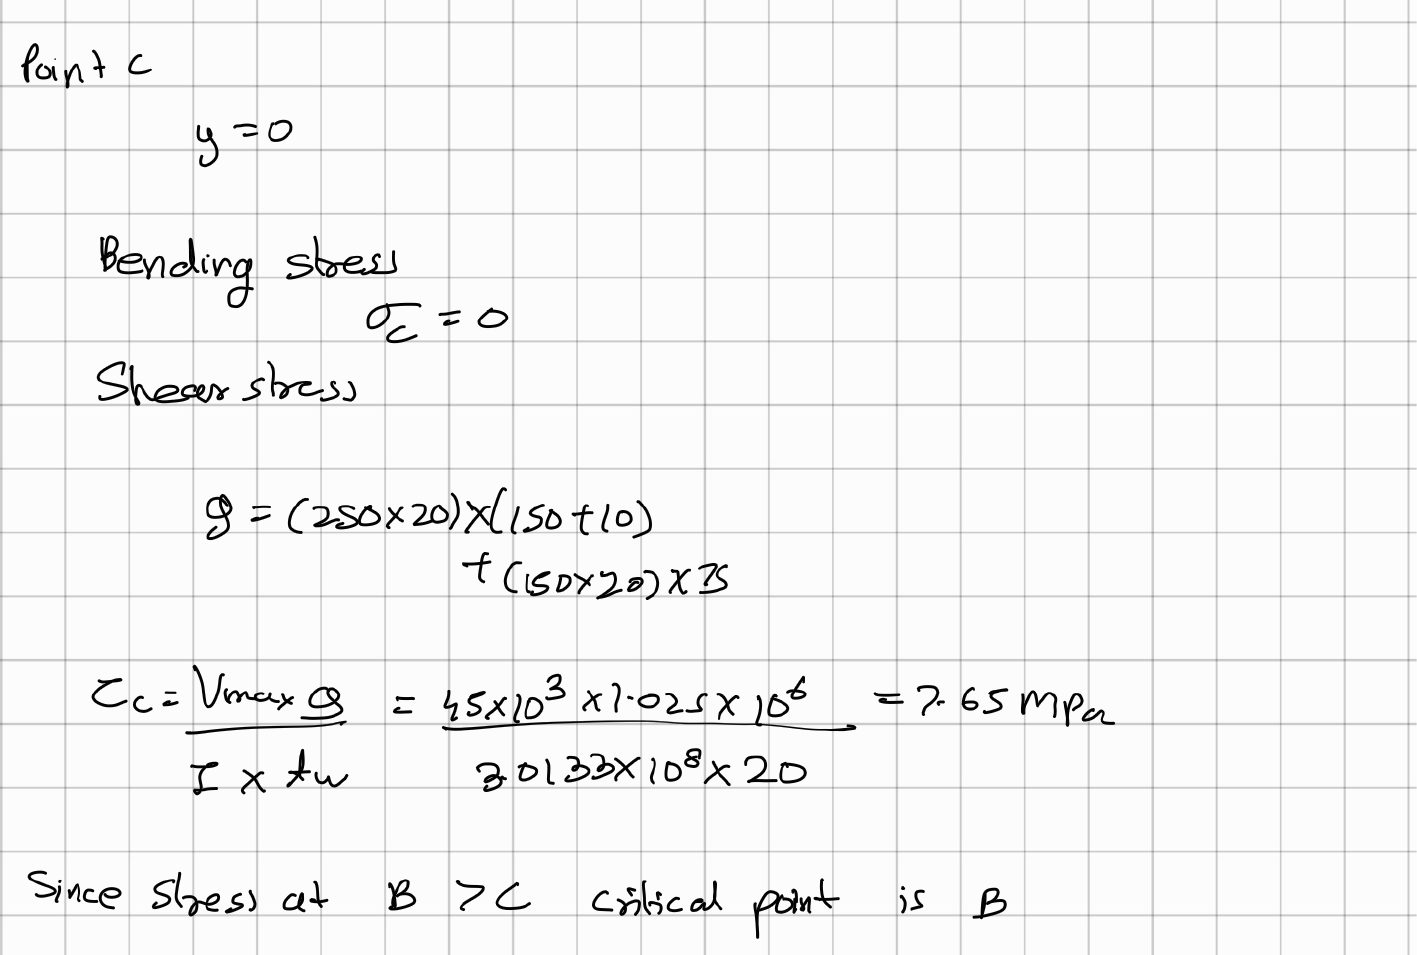 Point C
y = 0
Bending stress
σc = 0
Shear stress
Q = (250×20)×(150+10)
+ (150×20)×75
τc = Vmax Q / I × tw = 45×10³ × 1.025 × 10⁶ / 3.0133×10⁸ × 20 = 7.65 Mpa
Since stress at B > C critical point is B